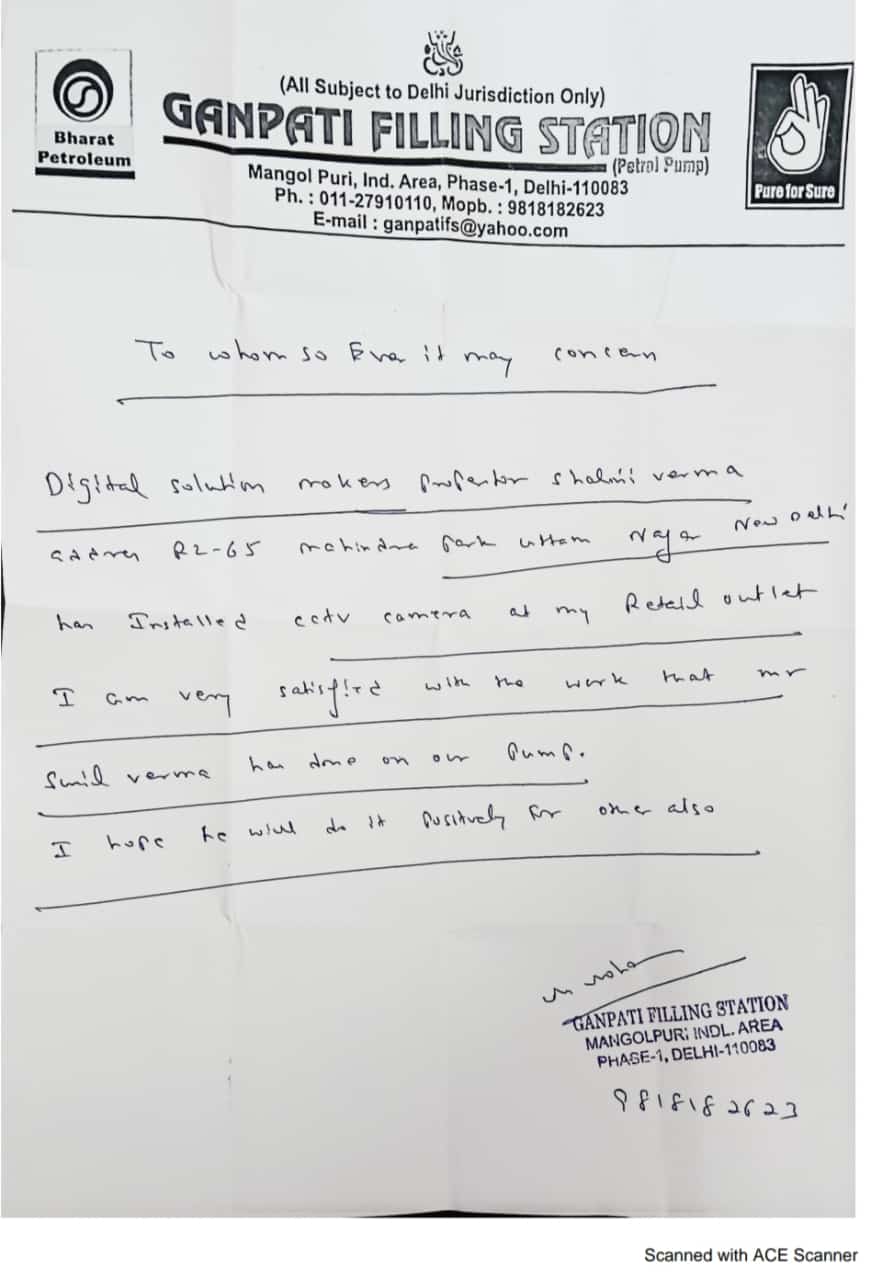 (All Subject to Delhi Jurisdiction Only)
Bharat
Petroleum
GANPATI FILLING STATION
(Petrol Pump)
Mangol Puri, Ind. Area, Phase-1, Delhi-110083
Ph. : 011-27910110, Mopb. : 9818182623
E-mail : ganpatifs@yahoo.com
Pure for Sure
To whom so Eva it may concern
Digital solution makers shalini verma
RZ-65 mahindra park uttam Nagar New Delhi
has Installed cctv camera at my Retail outlet
I am very satisfied with the work that mr
Sunil verma has done on our pump.
I hope he will do it positively for other also
GANPATI FILLING STATION
MANGOLPURI INDL. AREA
PHASE-1, DELHI-110083
9818182623
Scanned with ACE Scanner